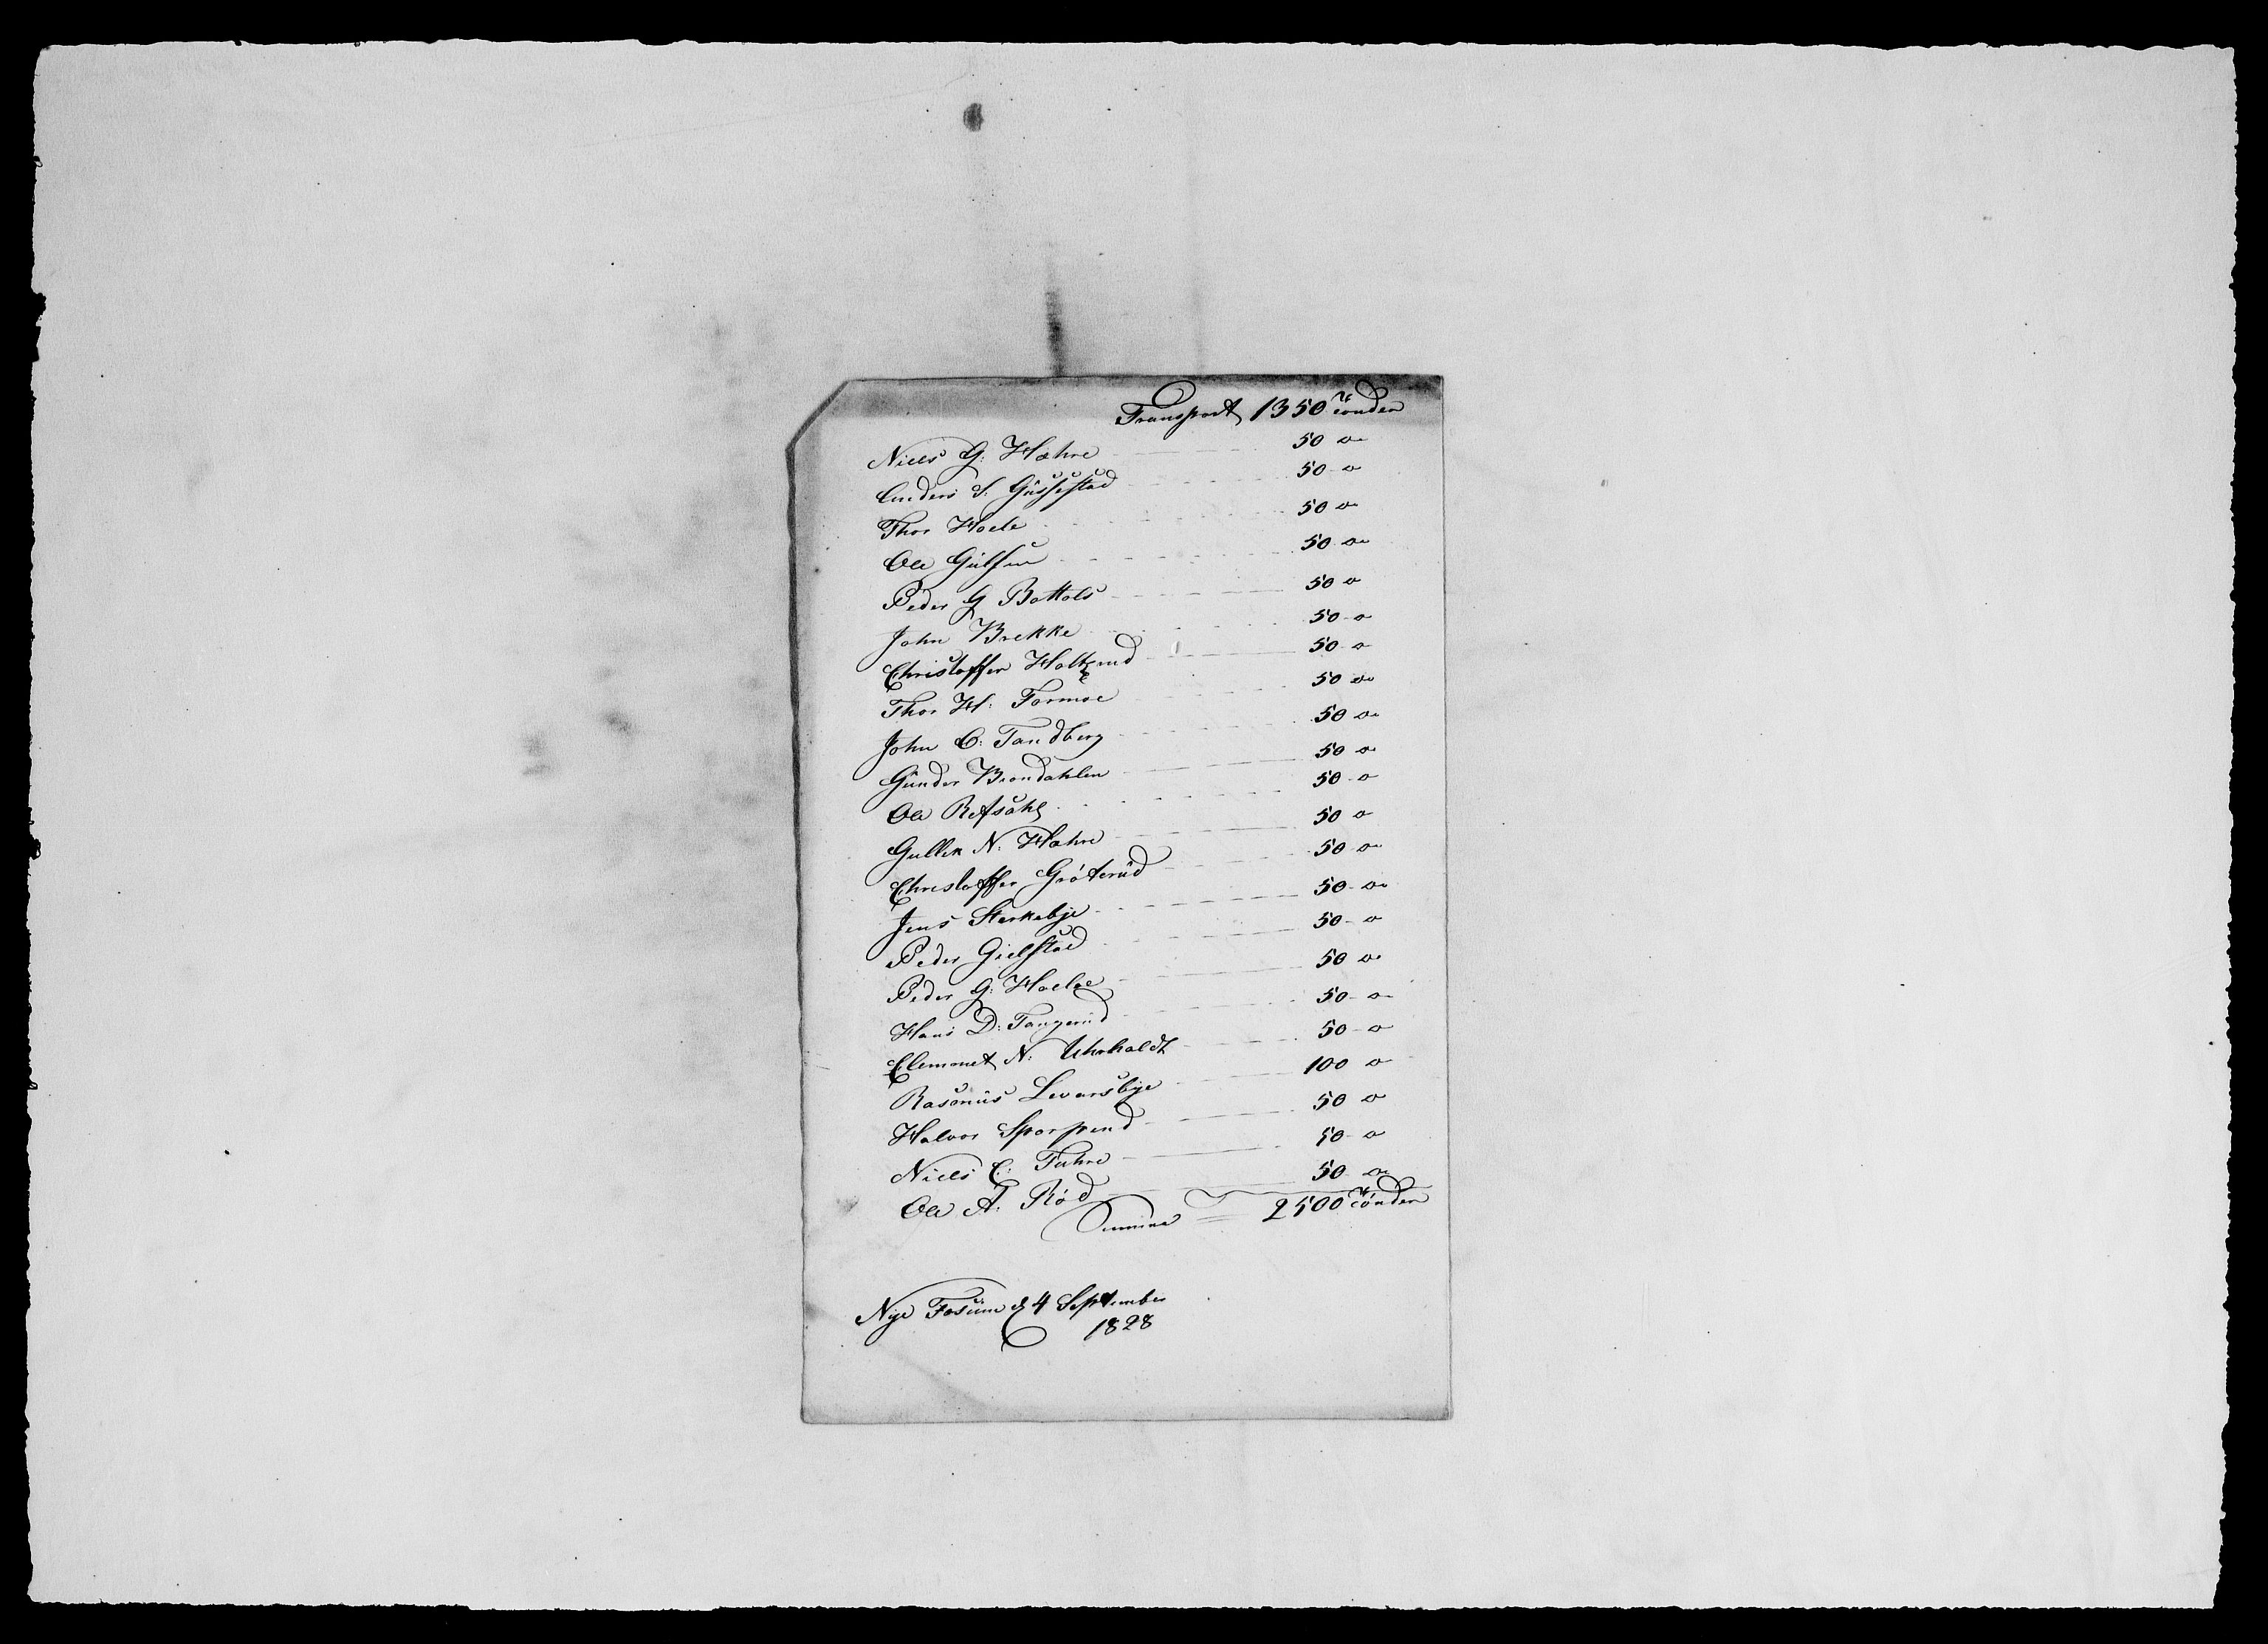 Transport 1350 Tønder
Niels G: Hæhre 50 "
Anders S. Gussestad 50 "
Thor Hoele 50 "
Ole Gulsen 50 "
Peder G Bottols 50 "
John Brekke 50 "
Christoffer Holtzrud 50 "
Thor H: Formoe 50 "
John C: Tandberg 50 "
Gunder Brondahlen 50 "
Ole Refsahl 50 "
Gullik N: Hæhre 50 "
Christoffer Gröterud 50 "
Jens Sterkebye 50 "
Peder Gielstad 50 "
Peder G: Hoeloe 50 "
Hans D: Tangerud 50 "
Clemmet N: Uhrholdt 50 "
Rasmus Leversbye 100 "
Halvor Sporpind 50 "
Niels C: Fuhre 50 "
Ole A: Röd 50 "
Summa = 2500 Tønder
Nye Fossum d 4 September
1828